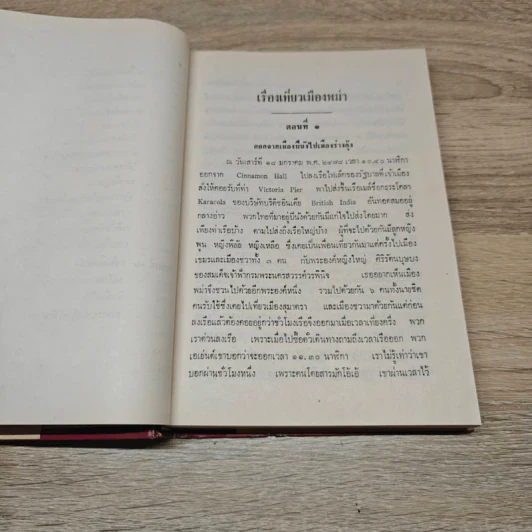 เรื่องเที่ยวเมืองพม่า
ตอนที่ ๑
ออกจากเมืองปีนังไปเมืองร่างกุ้ง
ณ วันเสาร์ที่ ๑๘ มกราคม พ.ศ. ๒๔๗๘ เวลา ๑๐,๔๖ นาฬิกา
ออกจาก Cinnamon Hall ไปลงเรือไฟเล็กของรัฐบาลที่เจ้าเมือง
สั่งให้คอยรับที่ท่า Victoria Pier พาไปส่งขึ้นเรือเมล์ชื่อการะโคลา
Karagola ของบริษัทบริติชอินเดีย British India อันทอดสมออยู่
กลางอ่าว พวกไทยที่มาอยู่ปีนังด้วยกันมีแก่ใจไปส่งโดยมาก ส่ง
เพียงท่าเรือบ้าง ตามไปส่งถึงเรือใหญ่บ้าง ผู้ที่จะไปด้วยกันมีลูกหญิง
พูน หญิงพิลัย หญิงเหลือ ซึ่งเคยเป็นเพื่อนเที่ยวกันมาแต่ครั้งไปเมือง
เขมรและเมืองชวาทั้ง ๓ คน กับพระองค์หญิงใหญ่ ศิริรัตนบุษบง
ของสมเด็จเจ้าฟ้ากรมพระนครสวรรค์วรพินิจ เธออยากเห็นเมือง
พม่าจึงชวนไปด้วยอีกพระองค์หนึ่ง รวมไปด้วยกัน ๖ คนทั้งนายชิด
คนรับใช้ซึ่งเคยไปเที่ยวเมืองสุมาตรา และเมืองชวามาด้วยกันแต่ก่อน
ลงเรือแล้วต้องคอยอยู่กว่าชั่วโมงเรือจึงออกมาเมื่อเวลาเที่ยงครึ่ง พวก
เราด่วนลงเรือ เพราะเมื่อไปซื้อตั๋วเดินทางถามถึงเวลาเรือออก พวก
เอเย่นต์เขาบอกว่าจะออกเวลา ๑๑.๓๐ นาฬิกา เราไม่รู้เท่าว่าเขา
บอกผ่านชั่วโมงหนึ่ง เพราะคนโดยสารมักโอ้เอ้ เขาผ่านเวลาไว้